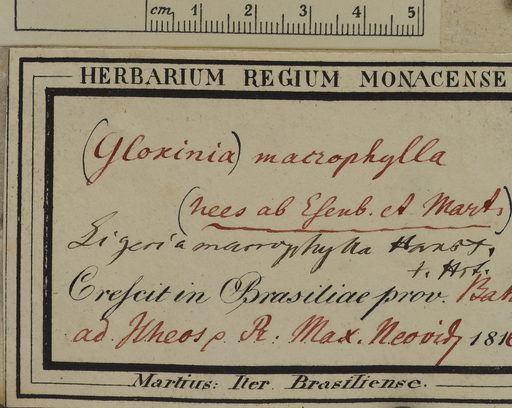 cm 1 2 3 4 5
HERBARIUM REGIUM MONACENSE
(Gloxinia) macrophylla
(Nees ab Esenb. et Mart.)
Ligeria macrophylla Hanst.
+. Hst.
Crescit in Brasiliae prov. Bah
ad Ilheos Pr. Max. Neovid 181
Martius: Iter Brasiliense.